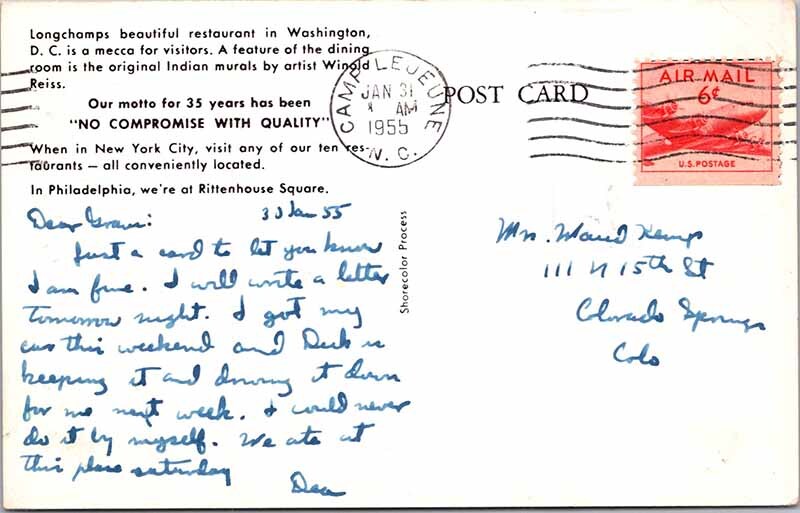 Longchamps beautiful restaurant in Washington,
D. C. is a mecca for visitors. A feature of the dining
room is the original Indian murals by artist Winold
Reiss.
Our motto for 35 years has been
"NO COMPROMISE WITH QUALITY"
When in New York City, visit any of our ten res-
taurants — all conveniently located.
In Philadelphia, we're at Rittenhouse Square.
CAMP LEJEUNE
JAN 31
AM
1955
N. C.
POST CARD
AIR MAIL
6¢
U.S. POSTAGE
Shorecolor Process
30 Jan 55
Dear Gram:
Just a card to let you know
I am fine. I will write a letter
tomorrow night. I got my
car this weekend and Dick is
keeping it and driving it down
for me next week. I could never
do it by myself. We ate at
this place saturday
Mrs. Maud Kemp
111 N 15th St
Colorado Springs
Colo